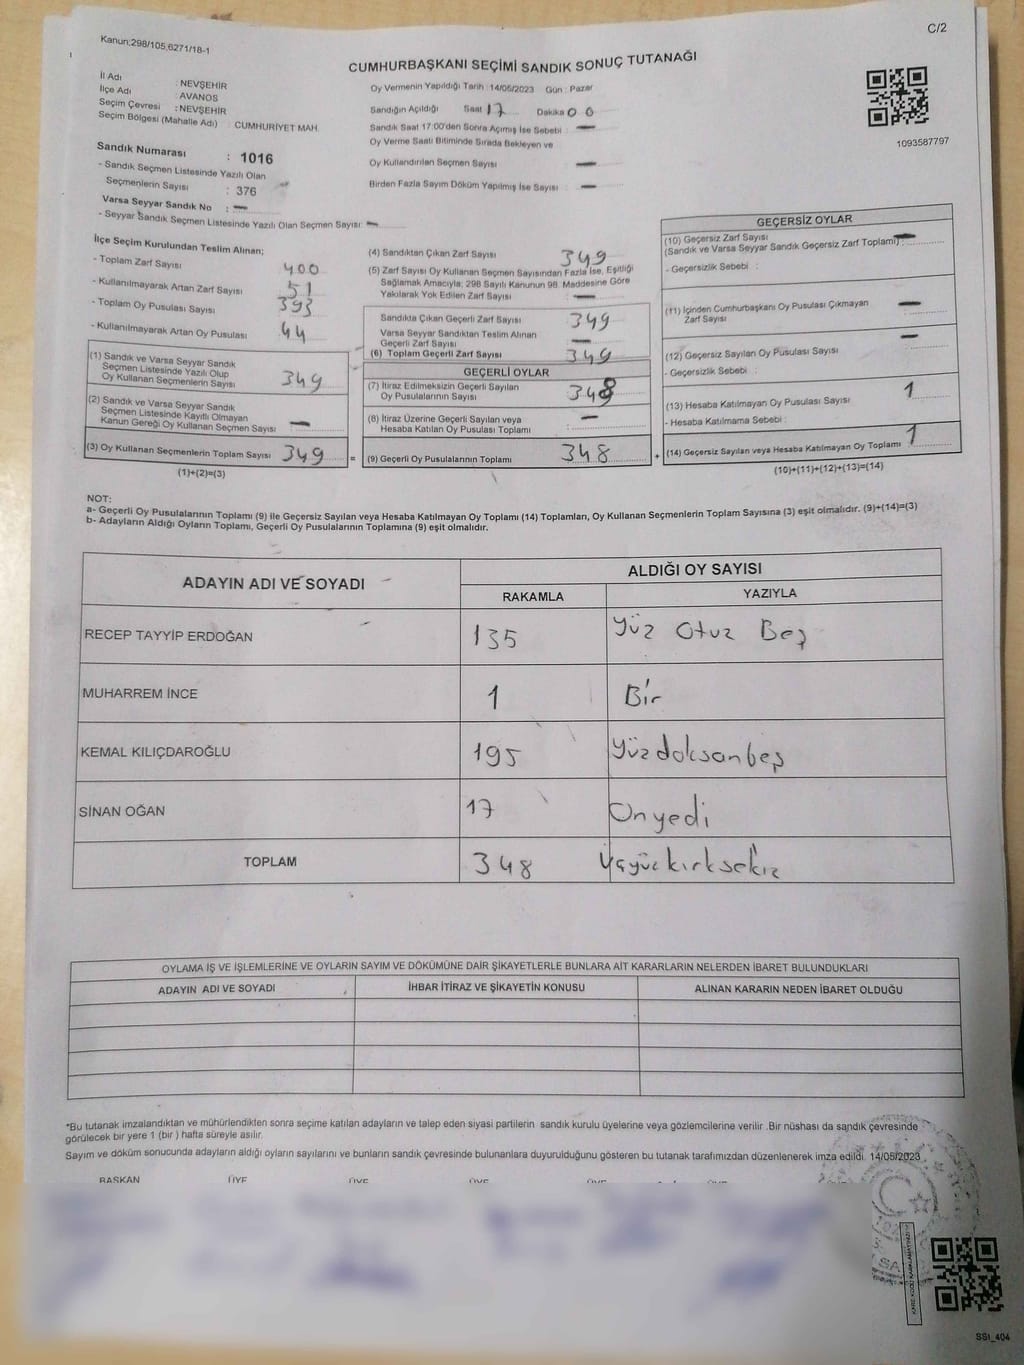 Kanun:298/105,6271/18-1
C/2
CUMHURBAŞKANI SEÇİMİ SANDIK SONUÇ TUTANAĞI
İl Adı : NEVŞEHİR
İlçe Adı : AVANOS
Seçim Çevresi : NEVŞEHİR
Seçim Bölgesi (Mahalle Adı) : CUMHURİYET MAH.
Oy Vermenin Yapıldığı Tarih : 14/05/2023 Gün : Pazar
Sandığın Açıldığı Saat 17 Dakika 00
Sandık Saat 17:00'den Sonra Açılmış İse Sebebi : —
Oy Verme Saati Bitiminde Sırada Bekleyen ve
Oy Kullandırılan Seçmen Sayısı —
Birden Fazla Sayım Döküm Yapılmış İse Sayısı : —
1093587797
Sandık Numarası : 1016
- Sandık Seçmen Listesinde Yazılı Olan
Seçmenlerin Sayısı : 376
Varsa Seyyar Sandık No : —
- Seyyar Sandık Seçmen Listesinde Yazılı Olan Seçmen Sayısı: —
İlçe Seçim Kurulundan Teslim Alınan;
- Toplam Zarf Sayısı 400
- Kullanılmayarak Artan Zarf Sayısı 51
- Toplam Oy Pusulası Sayısı 393
- Kullanılmayarak Artan Oy Pusulası 44
(1) Sandık ve Varsa Seyyar Sandık
Seçmen Listesinde Yazılı Olup
Oy Kullanan Seçmenlerin Sayısı 349
(2) Sandık ve Varsa Seyyar Sandık
Seçmen Listesinde Kayıtlı Olmayan
Kanun Gereği Oy Kullanan Seçmen Sayısı : —
(3) Oy Kullanan Seçmenlerin Toplam Sayısı 349 =
(1)+(2)=(3)
(4) Sandıktan Çıkan Zarf Sayısı 349
(5) Zarf Sayısı Oy Kullanan Seçmen Sayısından Fazla İse, Eşitliği
Sağlamak Amacıyla; 298 Sayılı Kanunun 98. Maddesine Göre
Yakılarak Yok Edilen Zarf Sayısı : —
Sandıkta Çıkan Geçerli Zarf Sayısı 349
Varsa Seyyar Sandıktan Teslim Alınan
Geçerli Zarf Sayısı : —
(6) Toplam Geçerli Zarf Sayısı 349
GEÇERLİ OYLAR
(7) İtiraz Edilmeksizin Geçerli Sayılan
Oy Pusulalarının Sayısı 348
(8) İtiraz Üzerine Geçerli Sayılan veya
Hesaba Katılan Oy Pusulası Toplamı : —
(9) Geçerli Oy Pusulalarının Toplamı 348 +
GEÇERSİZ OYLAR
(10) Geçersiz Zarf Sayısı
(Sandık ve Varsa Seyyar Sandık Geçersiz Zarf Toplamı) : —
- Geçersizlik Sebebi :
(11) İçinden Cumhurbaşkanı Oy Pusulası Çıkmayan
Zarf Sayısı —
(12) Geçersiz Sayılan Oy Pusulası Sayısı —
- Geçersizlik Sebebi :
(13) Hesaba Katılmayan Oy Pusulası Sayısı 1
- Hesaba Katılmama Sebebi :
(14) Geçersiz Sayılan veya Hesaba Katılmayan Oy Toplamı 1
(10)+(11)+(12)+(13)=(14)
NOT:
a- Geçerli Oy Pusulalarının Toplamı (9) ile Geçersiz Sayılan veya Hesaba Katılmayan Oy Toplamı (14) Toplamları, Oy Kullanan Seçmenlerin Toplam Sayısına (3) eşit olmalıdır. (9)+(14)=(3)
b- Adayların Aldığı Oyların Toplamı, Geçerli Oy Pusulalarının Toplamına (9) eşit olmalıdır.
ADAYIN ADI VE SOYADI ALDIĞI OY SAYISI
RAKAMLA YAZIYLA
RECEP TAYYİP ERDOĞAN 135 Yüz Otuz Beş
MUHARREM İNCE 1 Bir
KEMAL KILIÇDAROĞLU 195 Yüzdoksanbeş
SİNAN OĞAN 17 Onyedi
TOPLAM 348 Üçyüzkırksekiz
OYLAMA İŞ VE İŞLEMLERİNE VE OYLARIN SAYIM VE DÖKÜMÜNE DAİR ŞİKAYETLERLE BUNLARA AİT KARARLARIN NELERDEN İBARET BULUNDUKLARI
ADAYIN ADI VE SOYADI İHBAR İTİRAZ VE ŞİKAYETİN KONUSU ALINAN KARARIN NEDEN İBARET OLDUĞU
*Bu tutanak imzalandıktan ve mühürlendikten sonra seçime katılan adayların ve talep eden siyasi partilerin sandık kurulu üyelerine veya gözlemcilerine verilir .Bir nüshası da sandık çevresinde
görülecek bir yere 1 (bir ) hafta süreyle asılır.
Sayım ve döküm sonucunda adayların aldığı oyların sayılarını ve bunların sandık çevresinde bulunanlara duyurulduğunu gösteren bu tutanak tarafımızdan düzenlenerek imza edildi. 14/05/2023
BAŞKAN ÜYE ÜYE ÜYE ÜYE ÜYE
SSt_404